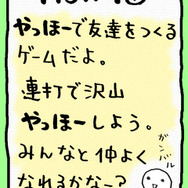 やっほーで友達をつくる
ゲームだよ。
連打で沢山
やっほーしよう。
みんなと仲よく
なれるかなー?
ガンバル